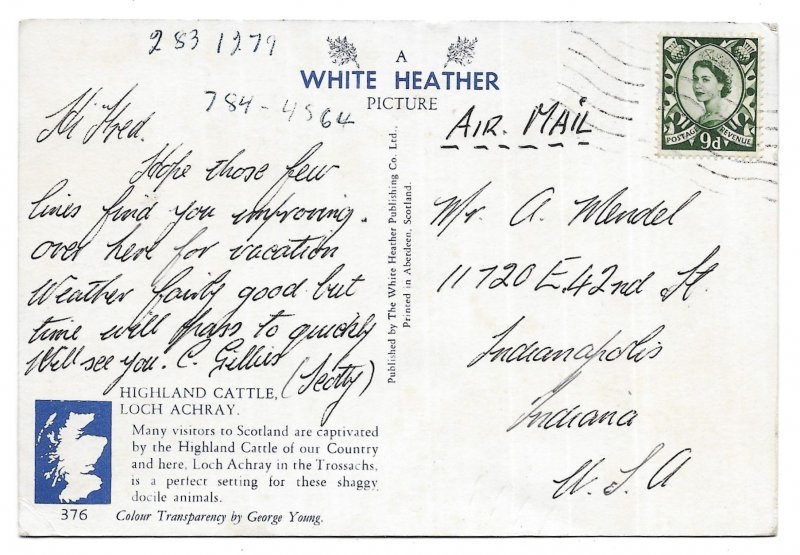 283 1279
A
WHITE HEATHER
PICTURE
784-4564
Hi Fred.
Hope those few
lines find you improving.
over here for vacation
Weather fairly good but
time will pass to quickly
Will see you. C. Gillies
(Scotty)
HIGHLAND CATTLE,
LOCH ACHRAY.
Many visitors to Scotland are captivated
by the Highland Cattle of our Country
and here, Loch Achray in the Trossachs,
is a perfect setting for these shaggy
docile animals.
376 Colour Transparency by George Young.
Published by The White Heather Publishing Co. Ltd.,
Printed in Aberdeen, Scotland.
POSTAGE REVENUE
9d
AIR. MAIL
Mr. A. Mendel
11720 E. 42nd St.
Indianapolis
Indiana
U. S. A